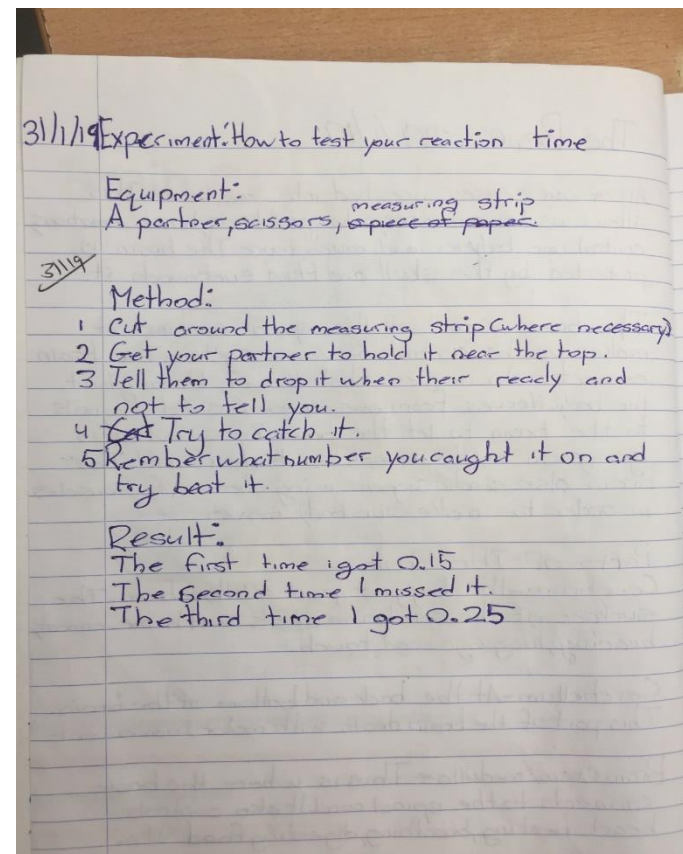 31/1/19 Experiment: How to test your reaction time
Equipment:
measuring strip
A partner, scissors, a piece of paper.
31/1/19
Method:
1 Cut around the measuring strip (where necessary)
2 Get your partner to hold it near the top.
3 Tell them to drop it when their ready and
not to tell you.
4 Try to catch it.
5 Rember what number you caught it on and
try beat it.
Result:
The first time i got 0.15
The second time I missed it.
The third time I got 0.25